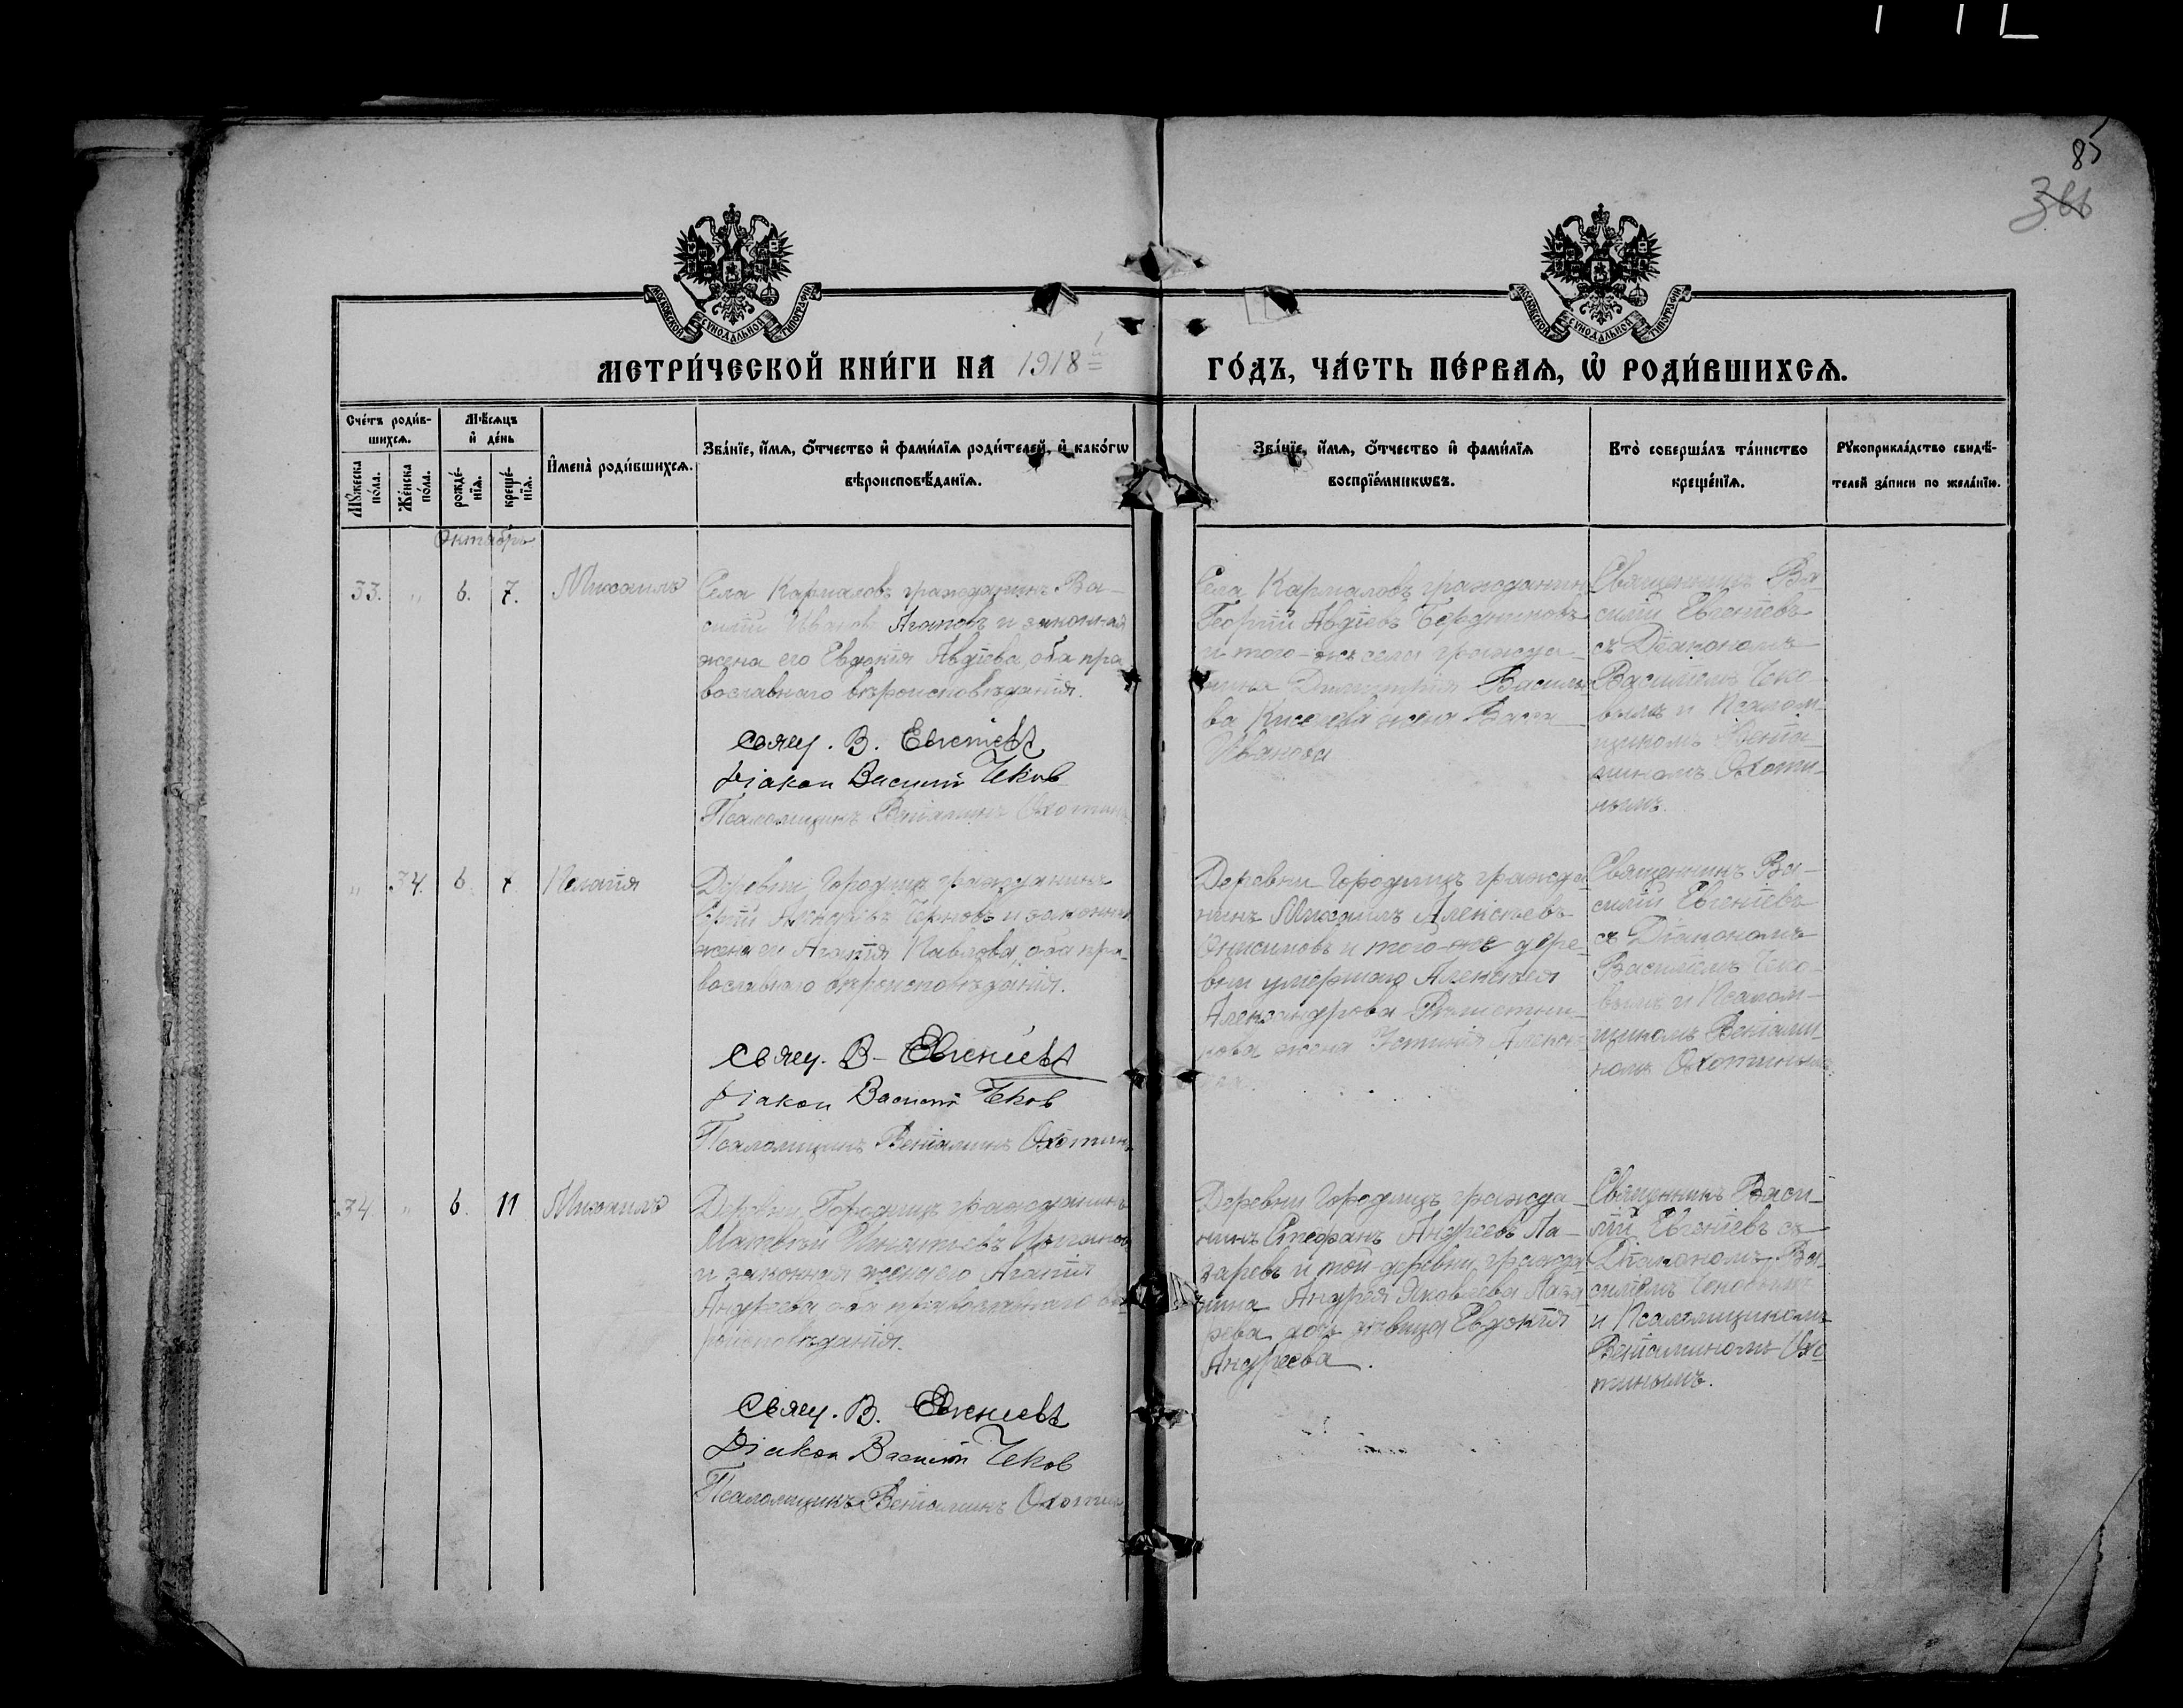 85
366
МОСКОВСКОЙ СѴНОДАЛЬНОЙ ТИПОГРАФІИ
МОСКОВСКОЙ СѴНОДАЛЬНОЙ ТИПОГРАФІИ
МЕТРИ́ЧЕСКОЙ КНИ́ГИ НА 1918 й
ГО́ДЪ, ЧА́СТЬ ПЕ́РВАѦ, Ѡ҆ РОДИ́ВШИХСѦ.
Сче́тъ роди́в-
шихсѧ.
Мꙋ́жеска
по́ла.
Же́нска
по́ла.
Мѣ́сѧцъ
и҆ де́нь
рожде́-
нїѧ.
креще́-
нїѧ.
И҆мена̀ роди́вшихсѧ.
Зва́нїе, и҆́мѧ, ѻ҆́тчество и҆ фами́лїѧ роди́телей, и҆ како́гѡ
вѣроисповѣ́данїѧ.
Зва́нїе, и҆́мѧ, ѻ҆́тчество и҆ фами́лїѧ
воспрїе́мникѡвъ.
Кто̀ соверша́лъ та́инство
креще́нїѧ.
Рꙋкоприкла́дство свидѣ́-
телей за́писи по жела́нїю.
Октябрь
33. " 6. 7. Михаилъ
Села Кармаловъ гражданинъ Ва-
силій Ивановъ Агаповъ и законная
жена его Евдокія Авдіева, оба пра
вославнаго вѣроисповѣданія.
Свящ. В. Евгеніевъ
Діакон Василій Чеков
Псаломщикъ Веніаминъ Охотин
Села Кармаловъ гражданинъ
Георгій Авдіевъ Бердниковъ
и того-же села гражда-
нина Димитрія Василье
ва Киселева жена Васса
Иванова
Священникъ Ва-
силій Евгеніевъ
съ Діакономъ
Василіемъ Чеко-
вымъ и Псалом-
щикомъ Веніа-
миномъ Охоти-
нымъ.
" 34. 6. 7. Пелагія
Деревни Городищъ гражданинъ
Черновъ и законная
жена его Агапія Павлова, оба пра-
вославнаго вѣроисповѣданія.
Свящ. В- Евгеніевъ
Діакон Василій Чеков
Псаломщикъ Веніаминъ Охотин
Деревни Городищъ гражда-
нинъ Михаилъ Алексѣевъ
Анисимовъ и того-же дере-
вни умершаго Алексѣя
Александрова
жена Устинія
Священникъ Ва-
силій Евгеніевъ
съ Діакономъ
Василіемъ Чеко-
вымъ и Псалом-
щикомъ Веніами-
номъ Охотинымъ.
34. " 6. 11 Михаилъ
Деревни Городищъ гражданинъ
Матвѣй Игнатьевъ Цыганов
и законная жена его Агапія
Андреева оба православнаго вѣ
роисповѣданія.
Свящ. В. Евгеніевъ
Діакон Василій Чеков
Псаломщикъ Веніаминъ Охотин
Деревни Городищъ гражда-
нинъ Стефанъ Андреевъ Ла-
заревъ и той деревни гражда
нина Андрея Яковлева Лаза
рева дочь дѣвица Евдокія
Андреева.
Священникъ Васи-
лій Евгеніевъ съ
Діакономъ Ва-
силіемъ Чековымъ
и Псаломщикомъ
Веніаминомъ Охо
тинымъ.